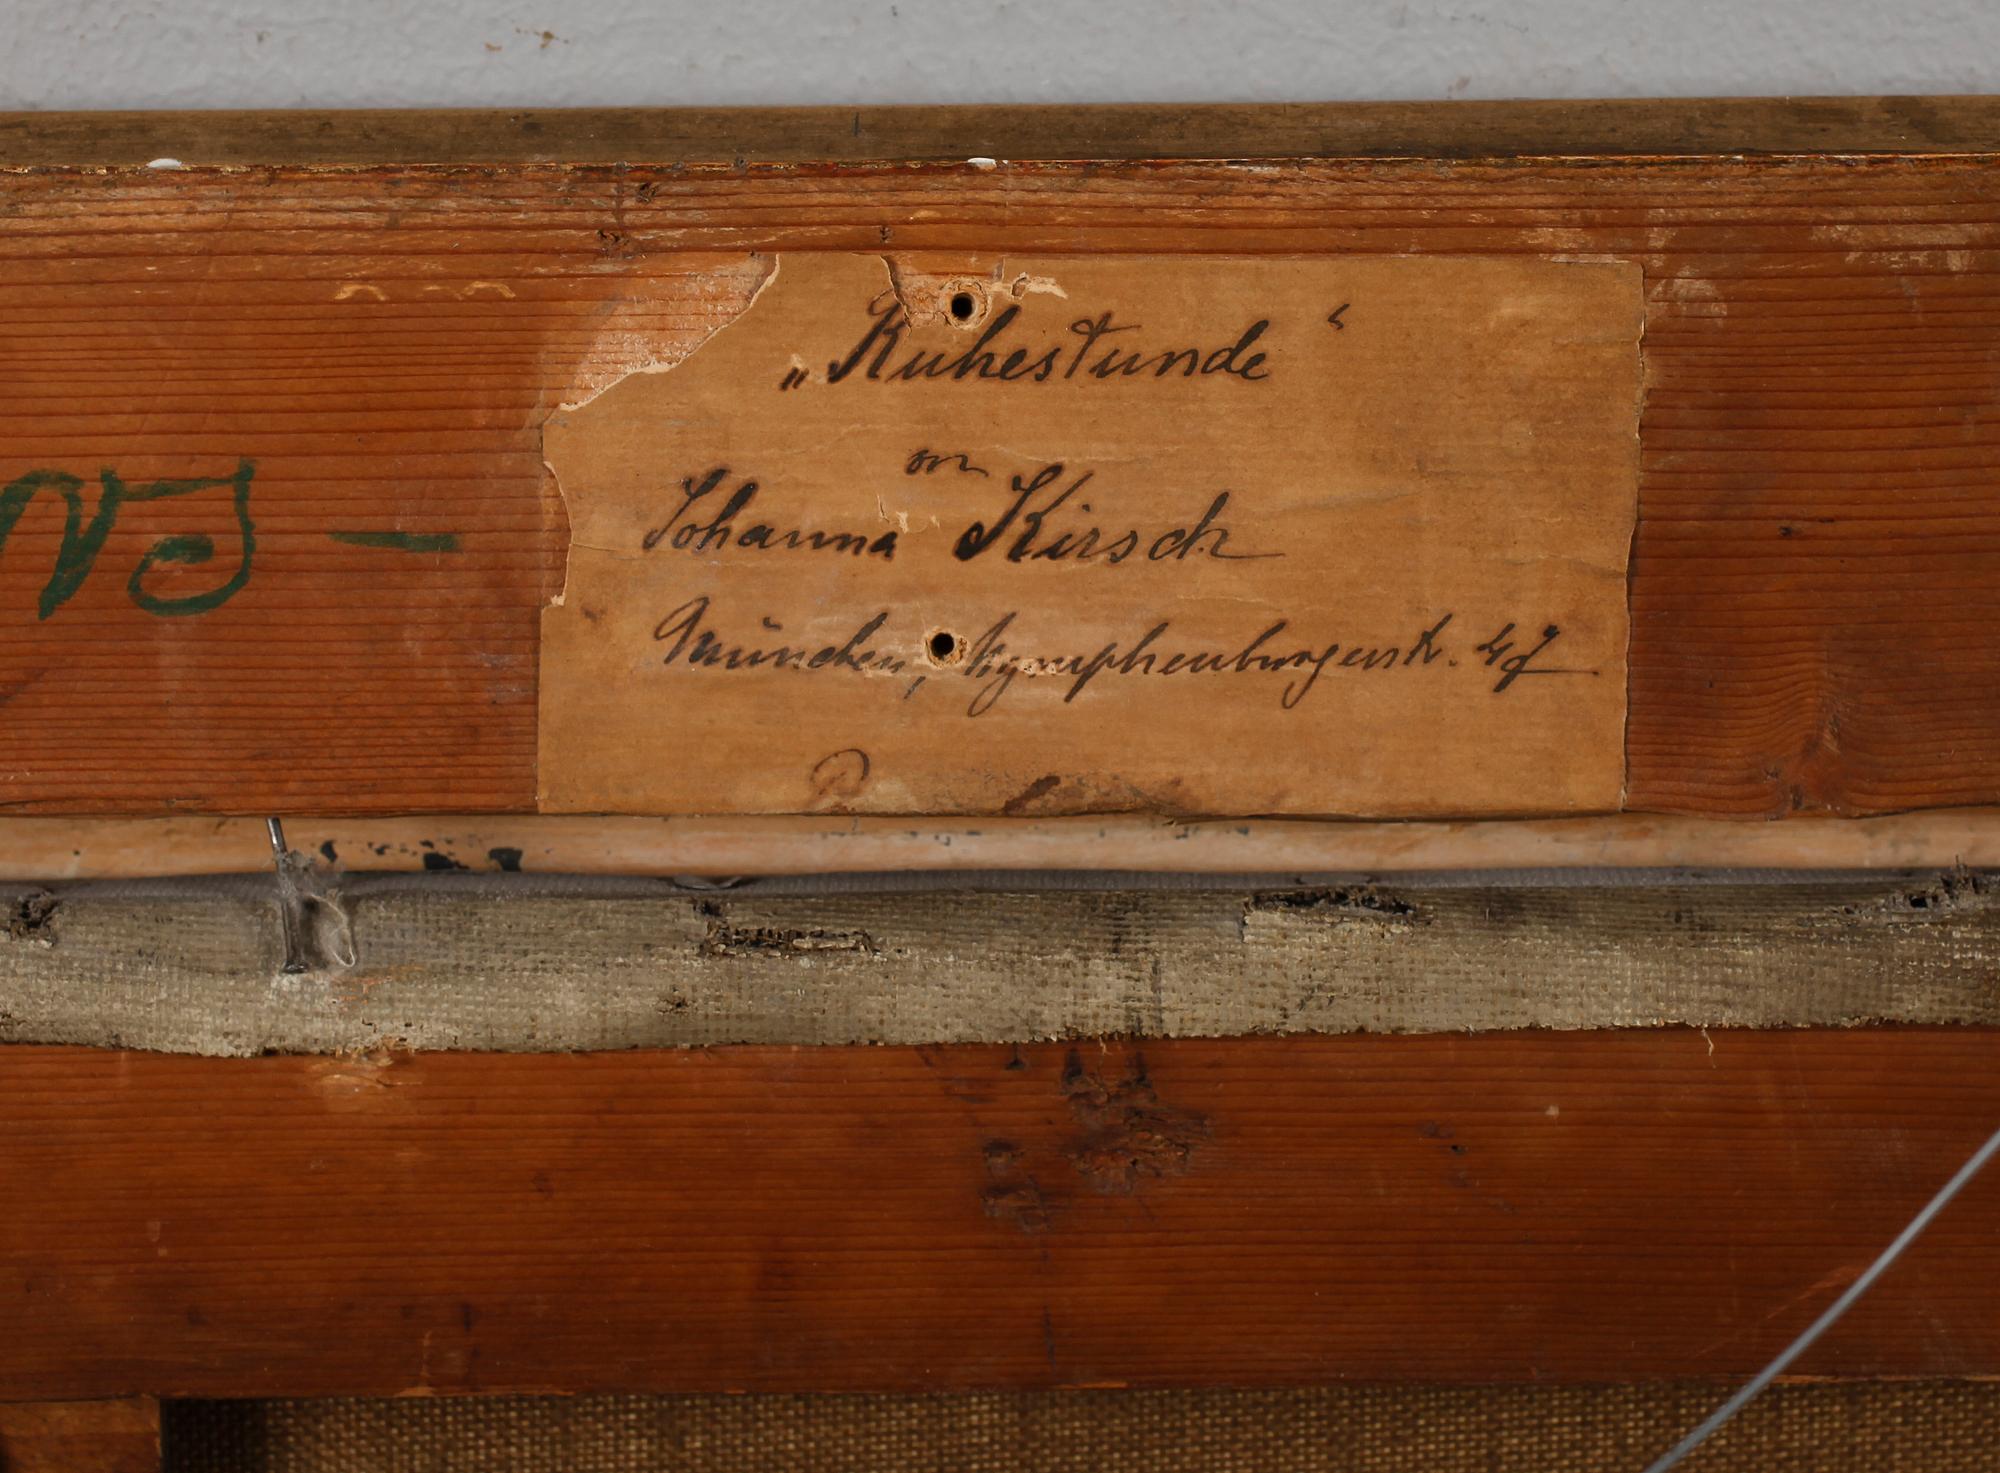 „Ruhestunde“
von
Johanna Kirsch
München, Nymphenburgerstr. 47